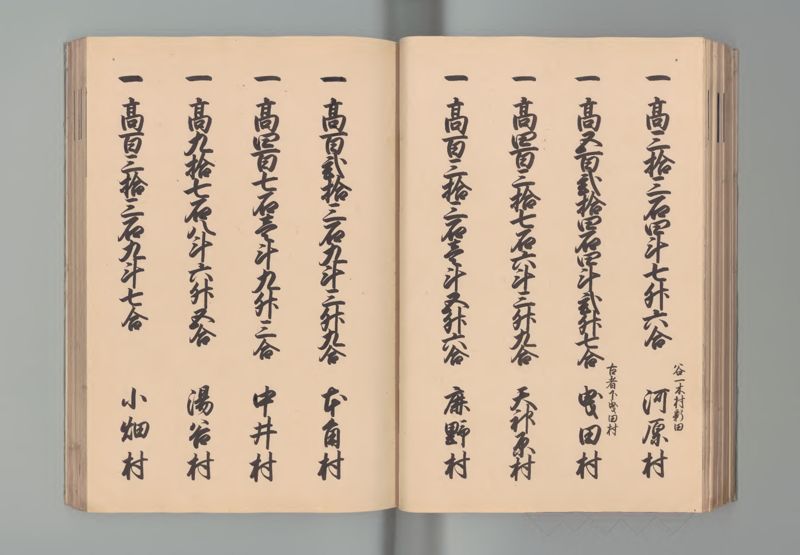 一 高三拾三石四斗七升六合 河原村
谷一木村新田
一 高五百弐拾四石四斗弐升七合 曳田村
古者下曳田村
一 高四百三拾七石六斗三升九合 天神原村
一 高百三拾三石壱斗五升六合 麻野村
一 高百弐拾三石九斗三升九合 本角村
一 高四百七石壱斗九升三合 中井村
一 高九拾七石八斗六升五合 湯谷村
一 高百三拾三石九斗七合 小畑村